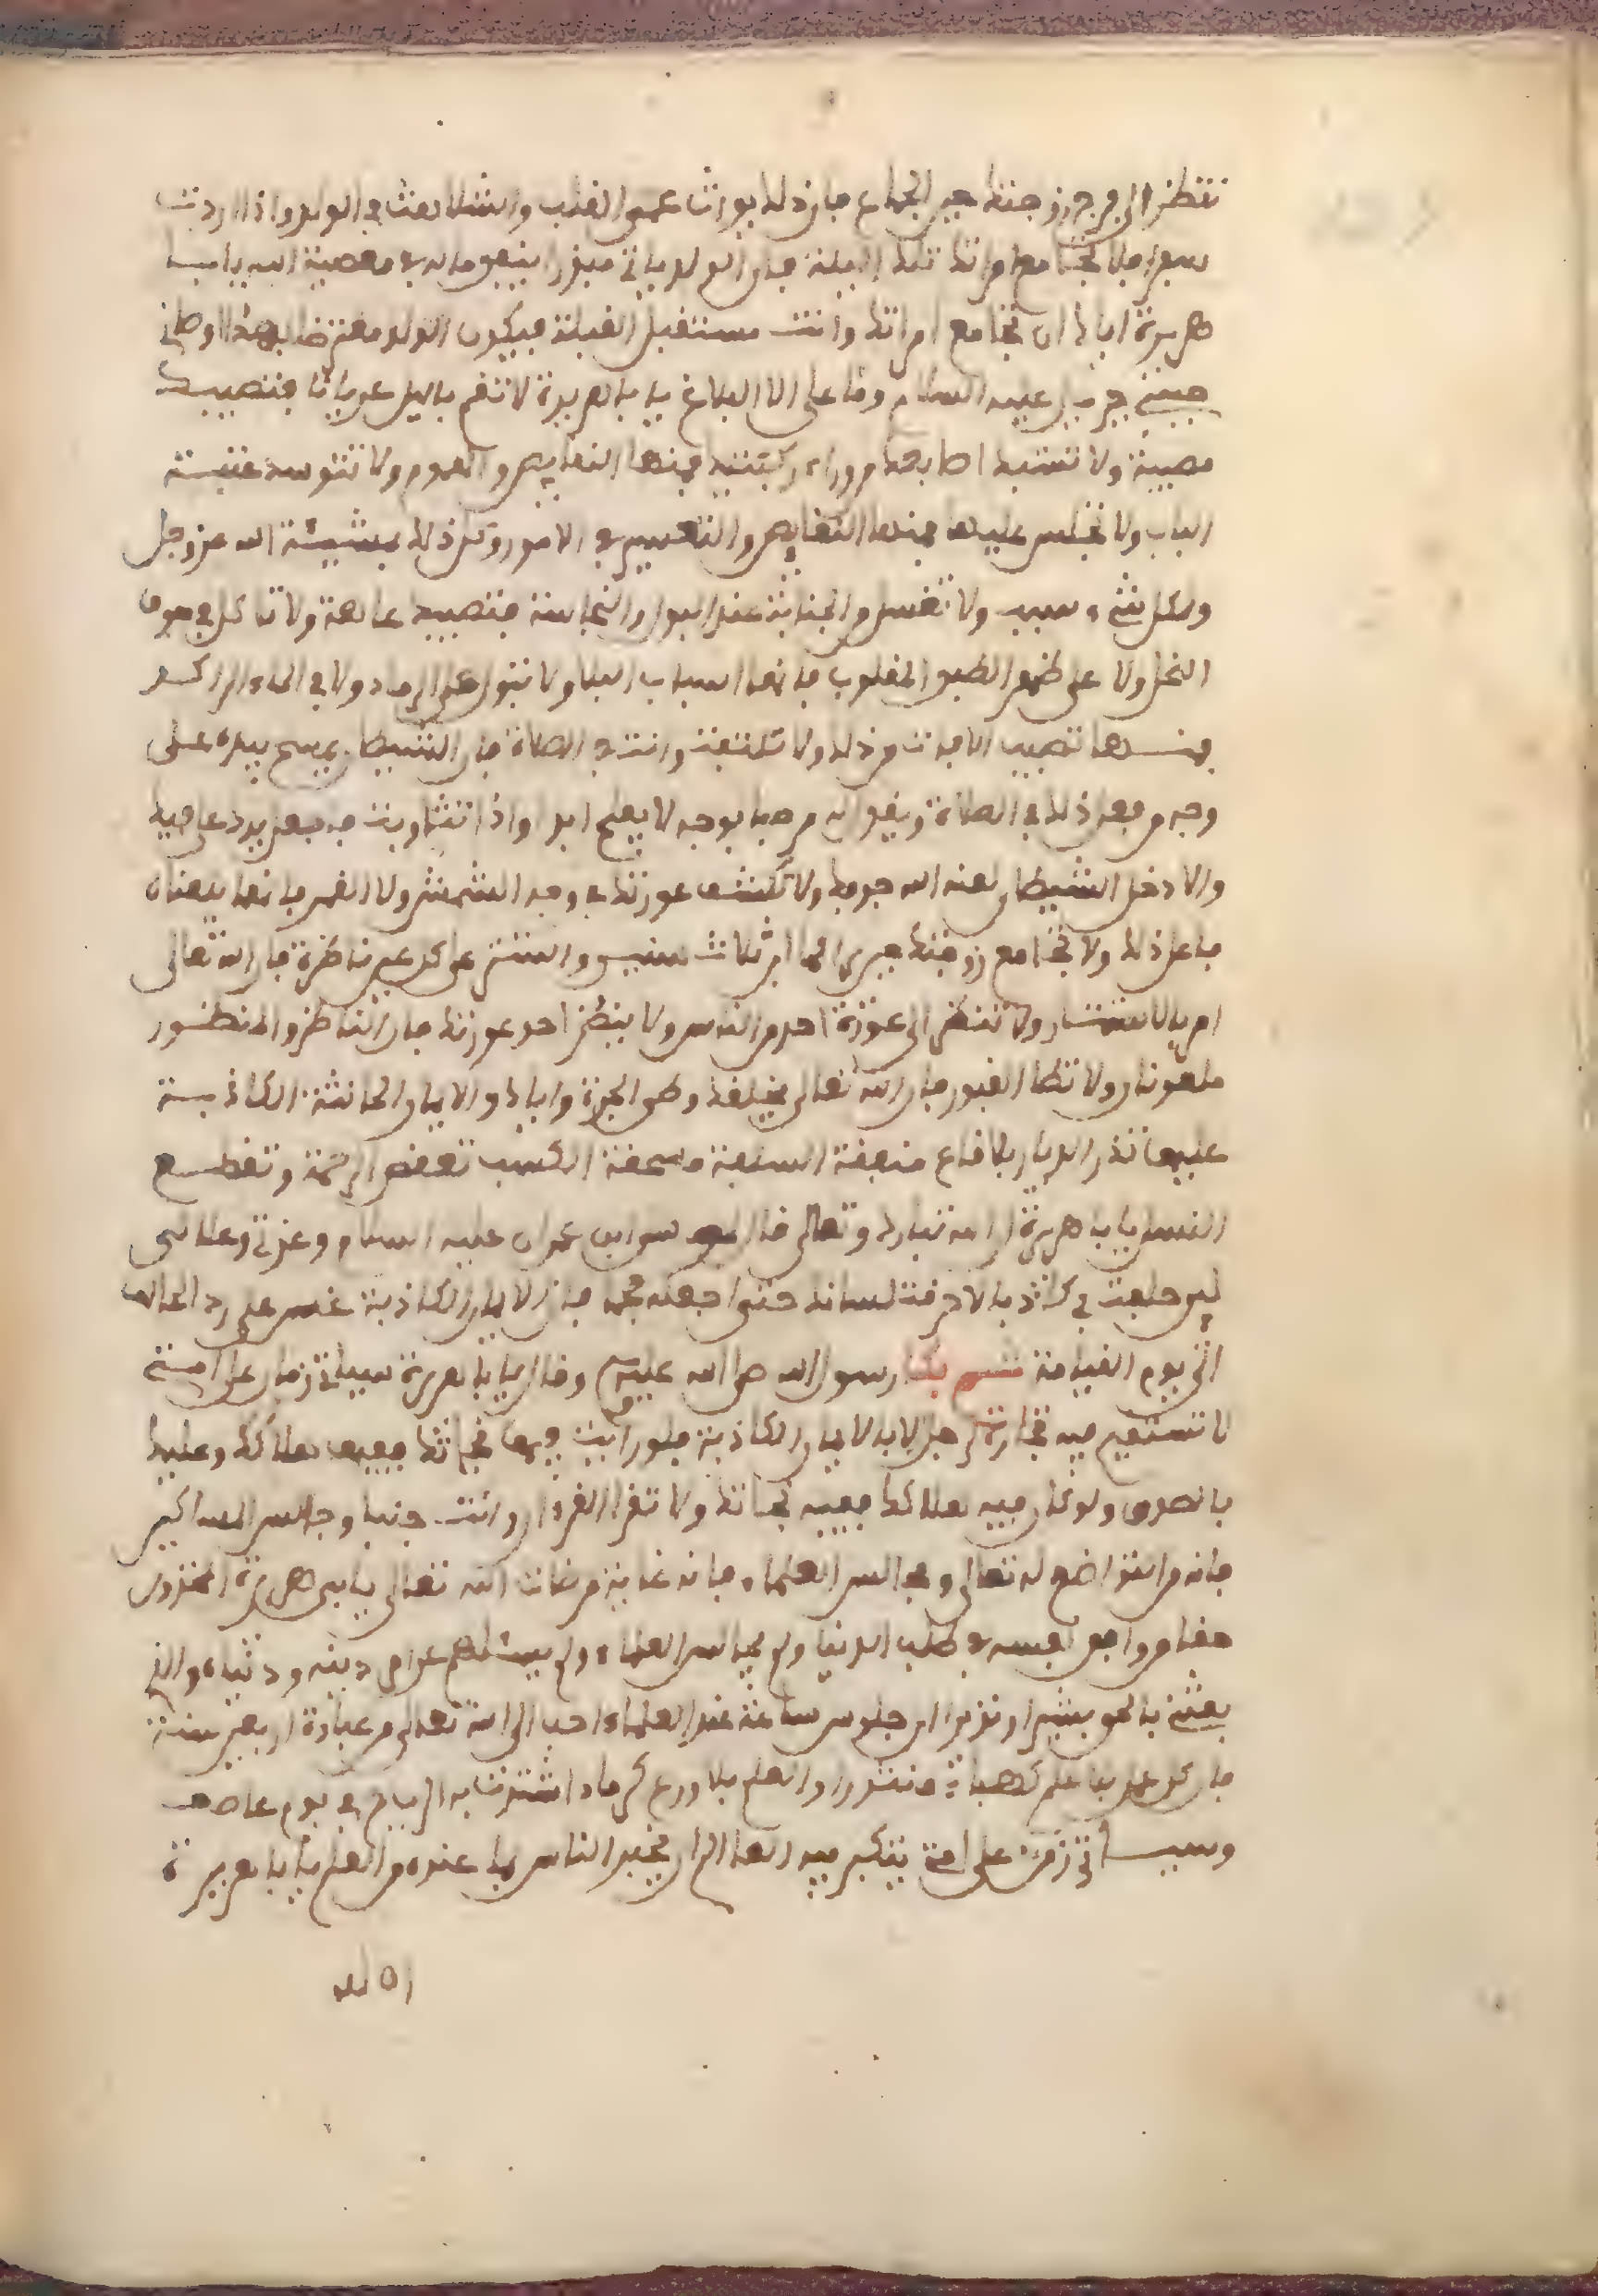 تنظر الى فرج زوجتك حين الجماع فان ذلك يورث عمى القلب والشلا يعث في الولد واذا اردت
سفرا فلا تجامع امراتك تلك اليلة فان الولد ياتي مبذرا ينفق ماله في معصية الله يابا
هريرة اياك ان تجامع امراتك وانت مستقبل القبلة فيكون الولد معترضا بهذا اوصاني
حبيبي جبريل عليه السلام وما علي الا البلاغ يا با هريرة لا تنم باليل عريانا فتصيبك
مصيبة ولا تشبك اصابعك من وراء ركبتيك فمنها النقايص والهموم ولا تتوسد عتبة
الباب ولا تجلس عليها فمنها النقايص والتعسير في الامور وكل ذلك بمشيئة الله عز وجل
ولكل شيء سبب ولا تغسل من الجنابة عند البول والنجاسة فتصيبك عاهة ولا تاكل في جوف
النخل ولا على ظهر الطبق المقلوب فانها اسباب البلا ولا تبول على الرماد ولا في الماء الراكد
فمنـها تصيب الافات من ذلك ولا تلتفت وانت في الصلاة فان الشيطان يمسح بيده على
وجه من فعل ذلك في الصلاة ويقول له مرحبا بوجه لا يفلح ابدا واذا تثاوبت فاجعل يدك على فيك
والا دخل الشيطان لعنه الله جوفك ولا تكشف عورتك في وجه الشمس ولا القمر فانهما يلعنان
فاعل ذلك ولا تجامع زوجتك حين يراكما ابن ثلاث سنين واستتر عن كل عين ناظرة فان الله تعالى
امر بالاستتار ولا تنظر الى عورة احد من الناس ولا ينظر احد عورتك فان الناظر والمنظور
ملعونان ولا تطا القبور فان الله تعالى وطى الجمرة واياك والايمان الحانثة الكاذبة
عليها تذر الديار بلاقع منفقة السلعة ممحقة الكسب تغض الرحمة وتقطع
النسل يابا هريرة ان الله تبارك وتعالى قال لموسى ابن عمران عليه السلام وعزتي وجلالي
لين حلفت بي كاذبا لاحرقت لسانك حتى اجعله فحما فان الايمان الكاذبة غضب على رد الحالف
الى يوم القيامة ثم بكا رسول الله صلى الله عليه وسلم وقال يا با هريرة سياتي زمان على امتي
لا تستقيم فيه تجارة الرجل الا بالايمان الكاذبة فلو رايت فيها نجاتك ففيها هلاكك وعليك
بالصدق ولو كان فيه هلاكك ففيه نجاتك ولا تقرا القرءان وانت جنبا وجالس المساكين
فانه من التواضع لله تعالى وجالس العلماء فانه غاية مرضات الله تعالى يابى هريرة المخزون
حقا من وافق نفسه في طلب الدنيا ولم يجالس العلماء ولم يسئلهم عن امر دينه ودنياه والذي
بعثني بالحق بشيرا ونذيرا ان جلوس ساعة عند العلماء احب الى الله تعالى من عبادة اربعين سنة
فان كل عمل بلا علم كهباء منثورا والعلم بلا ورع كرماد اشتدت به الرياح في يوم عاصف
وسيـاتي زمن على امتي يتكبر فيه العالم ان يخبر الناس بما عنده من العلم يا با هريرة